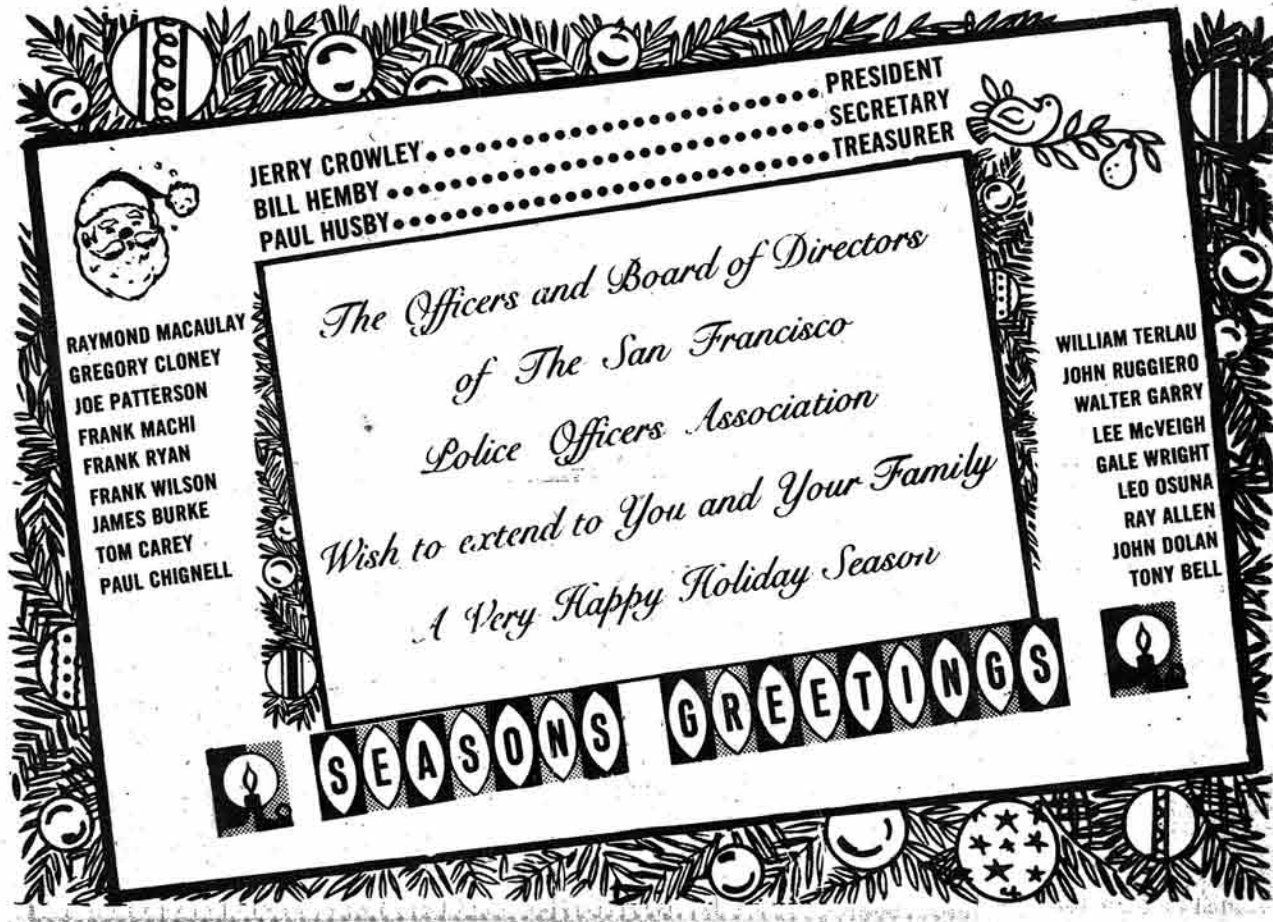 JERRY CROWLEY.............................PRESIDENT
BILL HEMBY................................SECRETARY
PAUL HUSBY................................TREASURER
RAYMOND MACAULAY
GREGORY CLONEY
JOE PATTERSON
FRANK MACHI
FRANK RYAN
FRANK WILSON
JAMES BURKE
TOM CAREY
PAUL CHIGNELL
The Officers and Board of Directors
of The San Francisco
Police Officers Association
Wish to extend to You and Your Family
A Very Happy Holiday Season
WILLIAM TERLAU
JOHN RUGGIERO
WALTER GARRY
LEE McVEIGH
GALE WRIGHT
LEO OSUNA
RAY ALLEN
JOHN DOLAN
TONY BELL
SEASONS GREETINGS